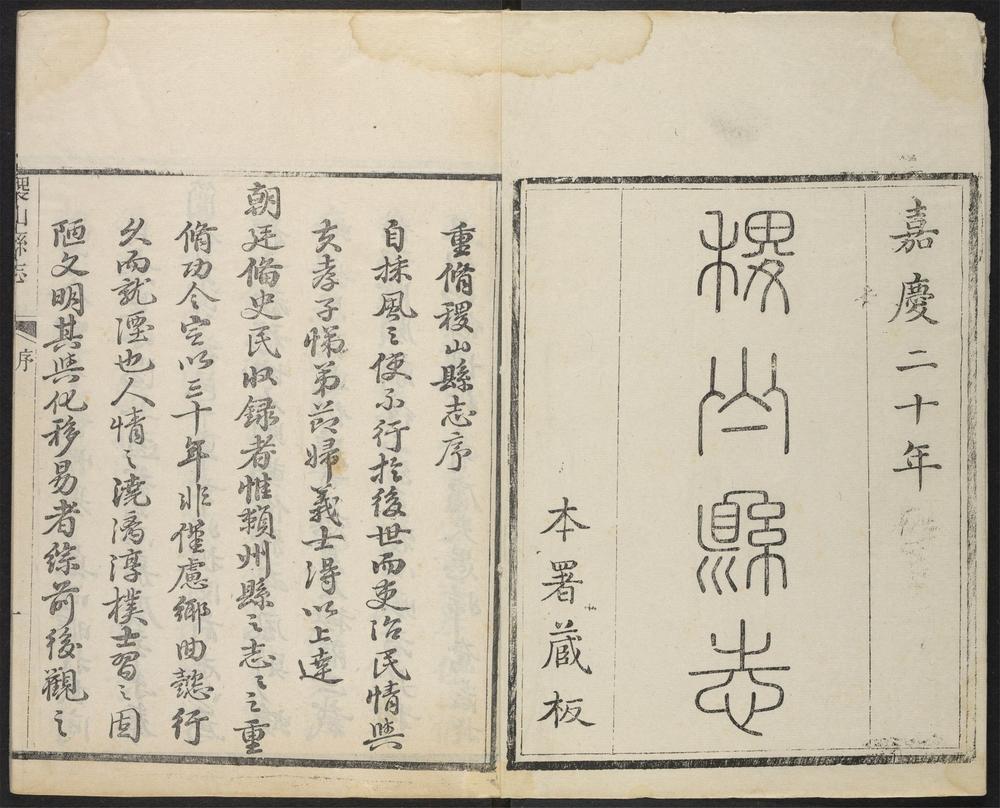 嘉慶二十年
稷山縣志
本署蔵板
重脩稷山縣志序
自採風之便不行於後世而吏治民情與
夫孝子悌弟節婦義士得以上達
朝廷俻史民収録者惟賴州縣之志志之重
脩功令定以三十年非僅慮鄉曲懿行
久而就湮也人情之澆漓淳樸士習之固
陋文明其與化移易者綜前後觀之
稷山縣志
序
一